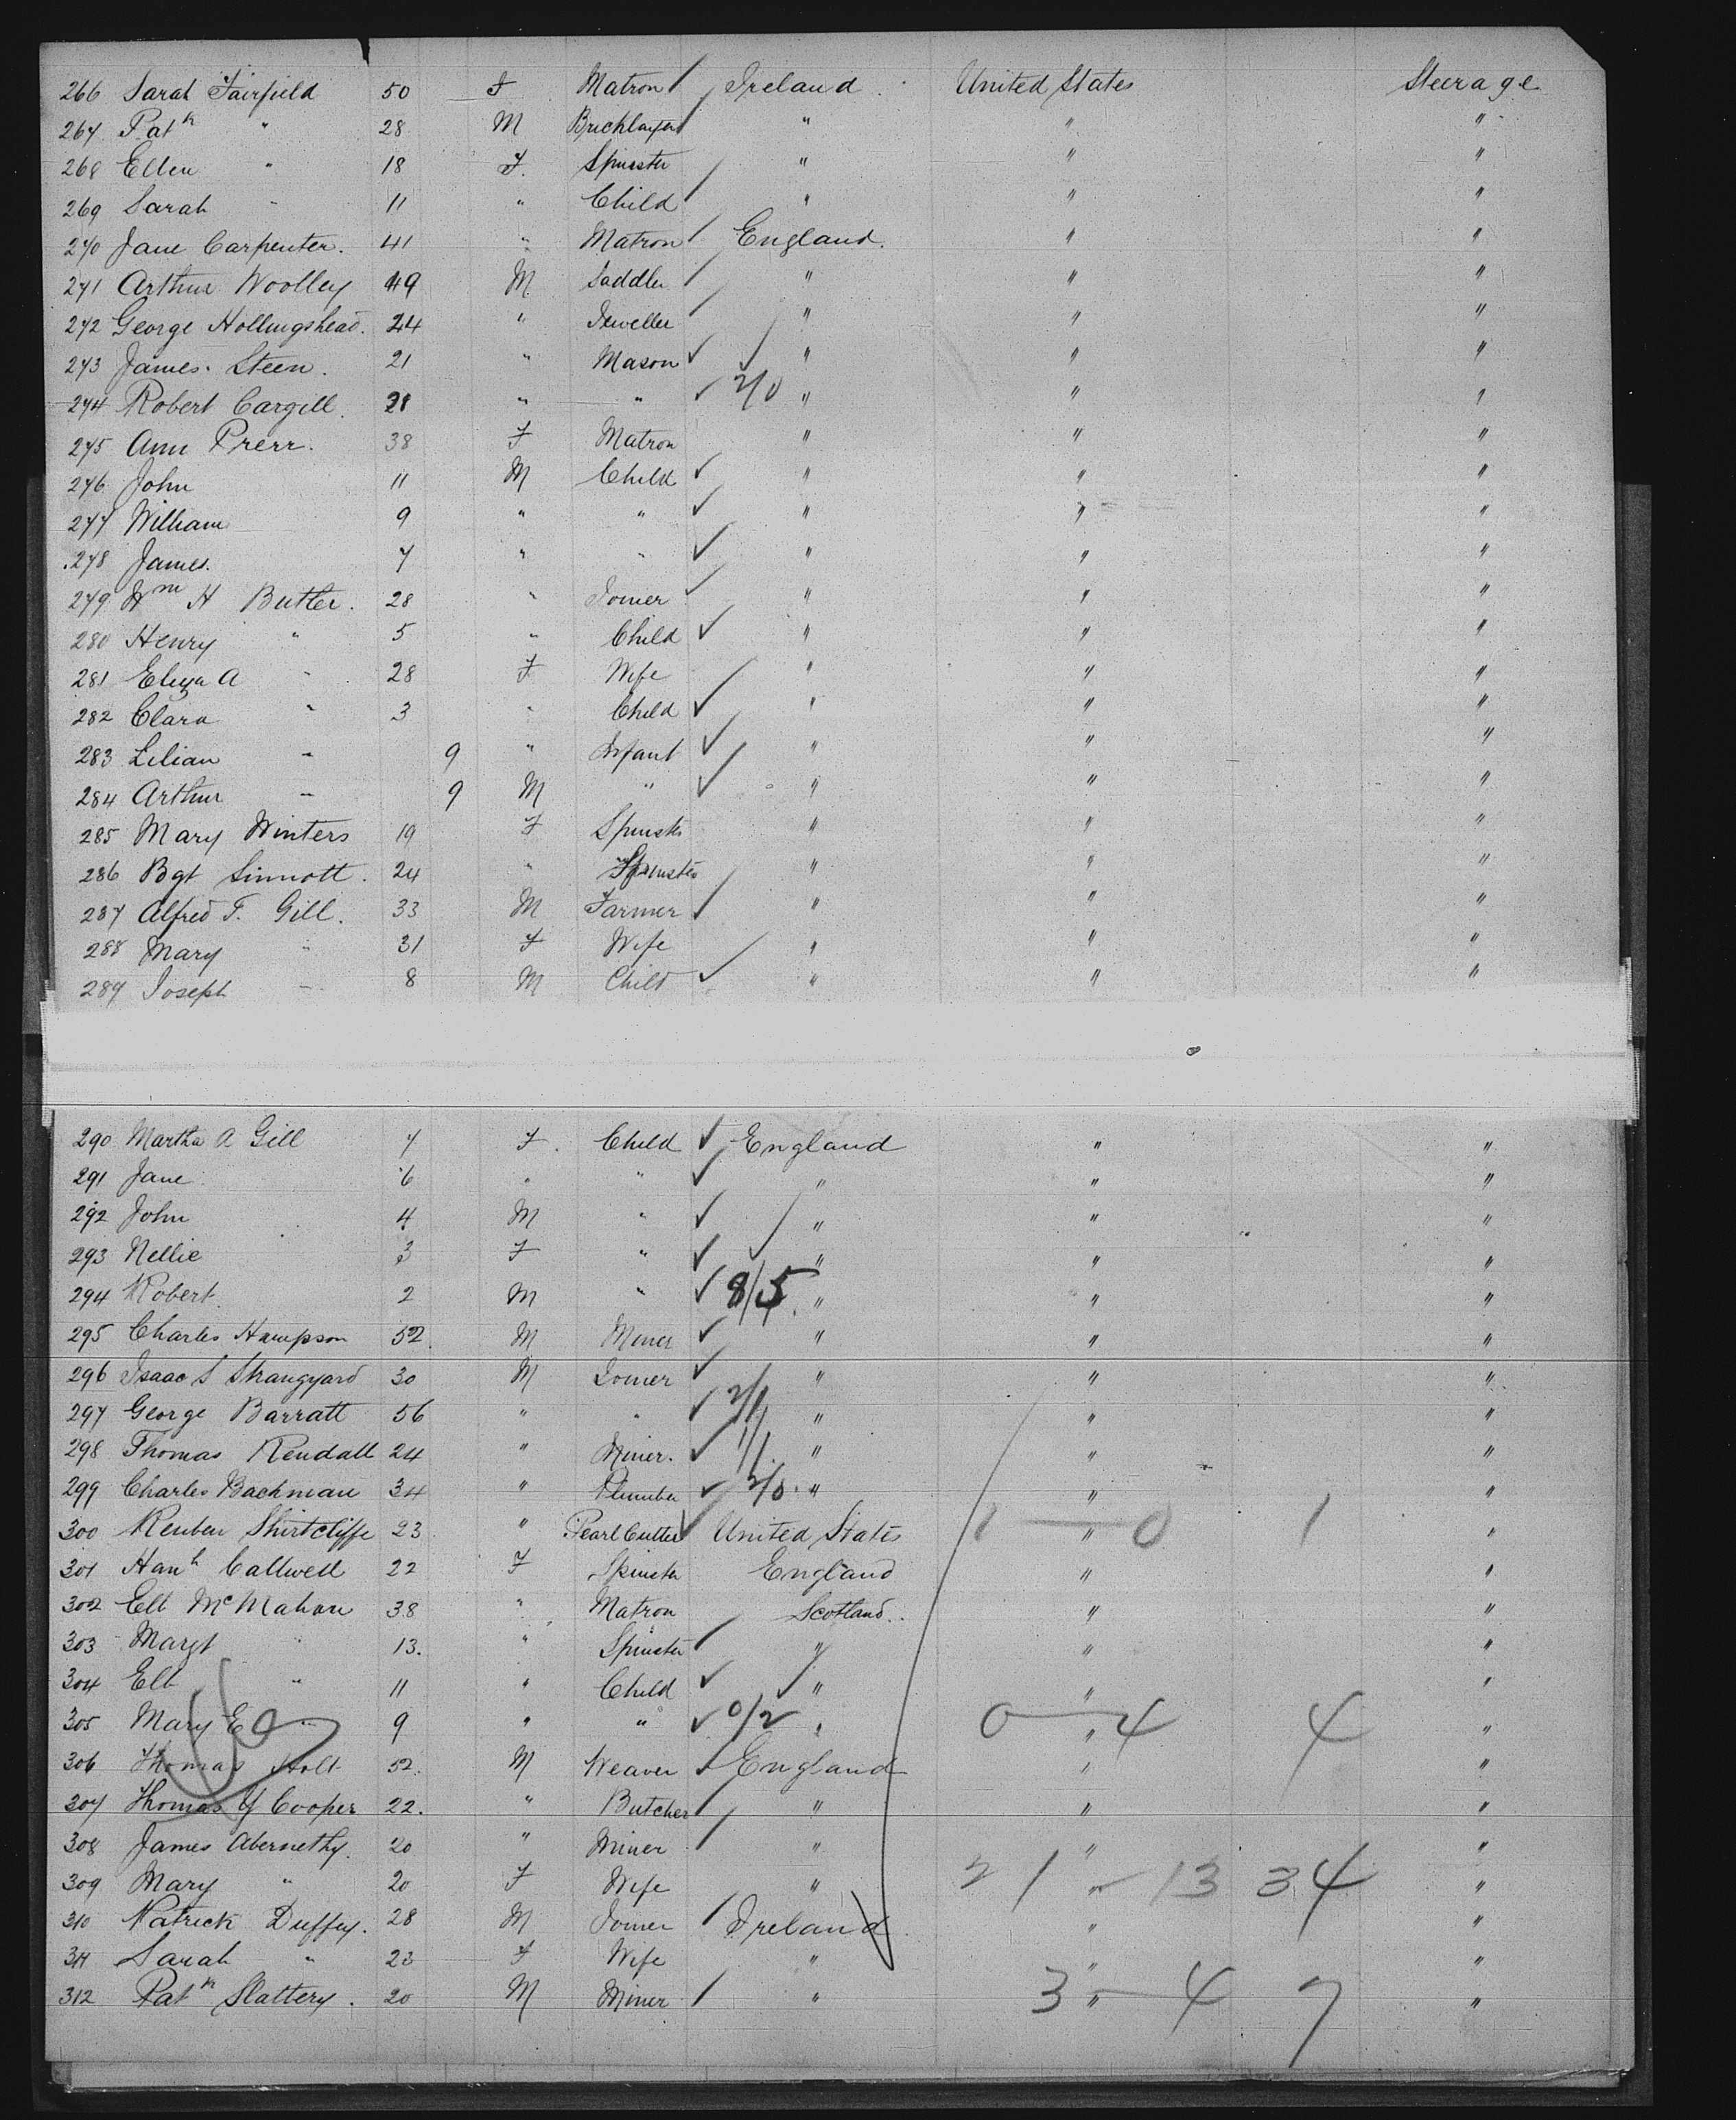 266 Sarah Fairfield 50 F Matron Ireland United States Steerage
267 Patk " 28 M Bricklayer " " "
268 Ellen " 18 F. Spinster " " "
269 Sarah " 11 " Child " " "
270 Jane Carpenter. 41 " Matron England. " "
271 Arthur Woolley 49 M Saddler " " "
272 George Hollingshead. 24 " Jeweller " " "
273 James Steen. 21 " Mason " " "
274 Robert Cargill. 21 " " 2/0 " " "
275 Ann Prerr. 38 F Matron " " "
276 John 11 M Child " " "
277 William 9 " " " " "
278 James. 7 " " " " "
279 Wm H Butler. 28 " Joiner " " "
280 Henry " 5 " Child " " "
281 Eliza A " 28 F Wife " " "
282 Clara " 3 " Child " " "
283 Lilian " 9 " Infant " " "
284 Arthur " 9 M " " " "
285 Mary Winters 19 F Spinster " " "
286 Bgt Sinnott. 24 " Spinster " " "
287 Alfred T. Gill. 33 M Farmer " " "
288 Mary " 31 F Wife " " "
289 Joseph " 8 M Child " " "
290 Martha A Gill 7 F. Child England " "
291 Jane 6 " " " " "
292 John 4 M " " " "
293 Nellie 3 F " " " "
294 Robert. 2 M " 8/5 " " "
295 Charles Hampson 52. M Miner " " "
296 Isaac S Strangyard 30 M Joiner " " "
297 George Barratt 56 " " 2/1 " " "
298 Thomas Kendall 24 " Miner. 1/1 " " "
299 Charles Bachman 34 " Plumber 2/0 " " "
300 Reuben Shirtcliffe 23 " Pearl Cutter United States 1 — 0 1 " "
301 Hanh Callwell 22 F Spinster England " "
302 Elt McMahon 38 " Matron Scotland.. " "
303 Margt " 13. " Spinster " " "
304 Elt " 11 " Child " " "
305 Mary E " 9 " " 0/2 " 0 — 4 4 " "
306 Thomas Holt 52. M Weaver England " "
307 Thomas Y Cooper 22. " Butcher " " "
308 James Abernethy. 20 " Miner " " "
309 Mary " 20 F Wife " 21 — 13 34 " "
310 Patrick Duffey. 28 M Joiner Ireland. " "
311 Sarah " 23 F Wife " " "
312 Patk Slattery. 20 M Miner " 3 — 4 7 " "